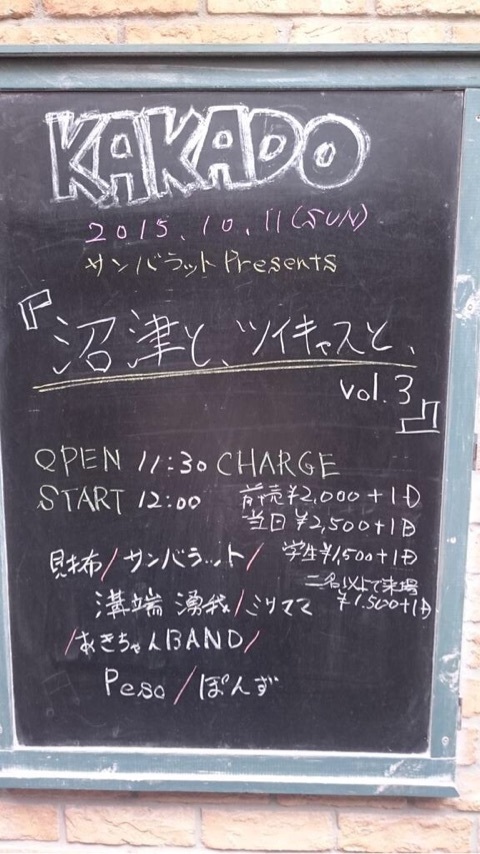 KAKADO
2015.10.11(SUN)
サンバラットPresents
『沼津と、ツイキャスと、
vol.3』
OPEN 11:30 CHARGE
START 12:00 前売¥2,000+1D
当日¥2,500+1D
財布/サンバラット/ 学生¥1,500+1D
二名以上で来場
溝端 湧我/ミリママ ¥1,500+1D
/あきちゃんBAND/
Peso/ぽんず